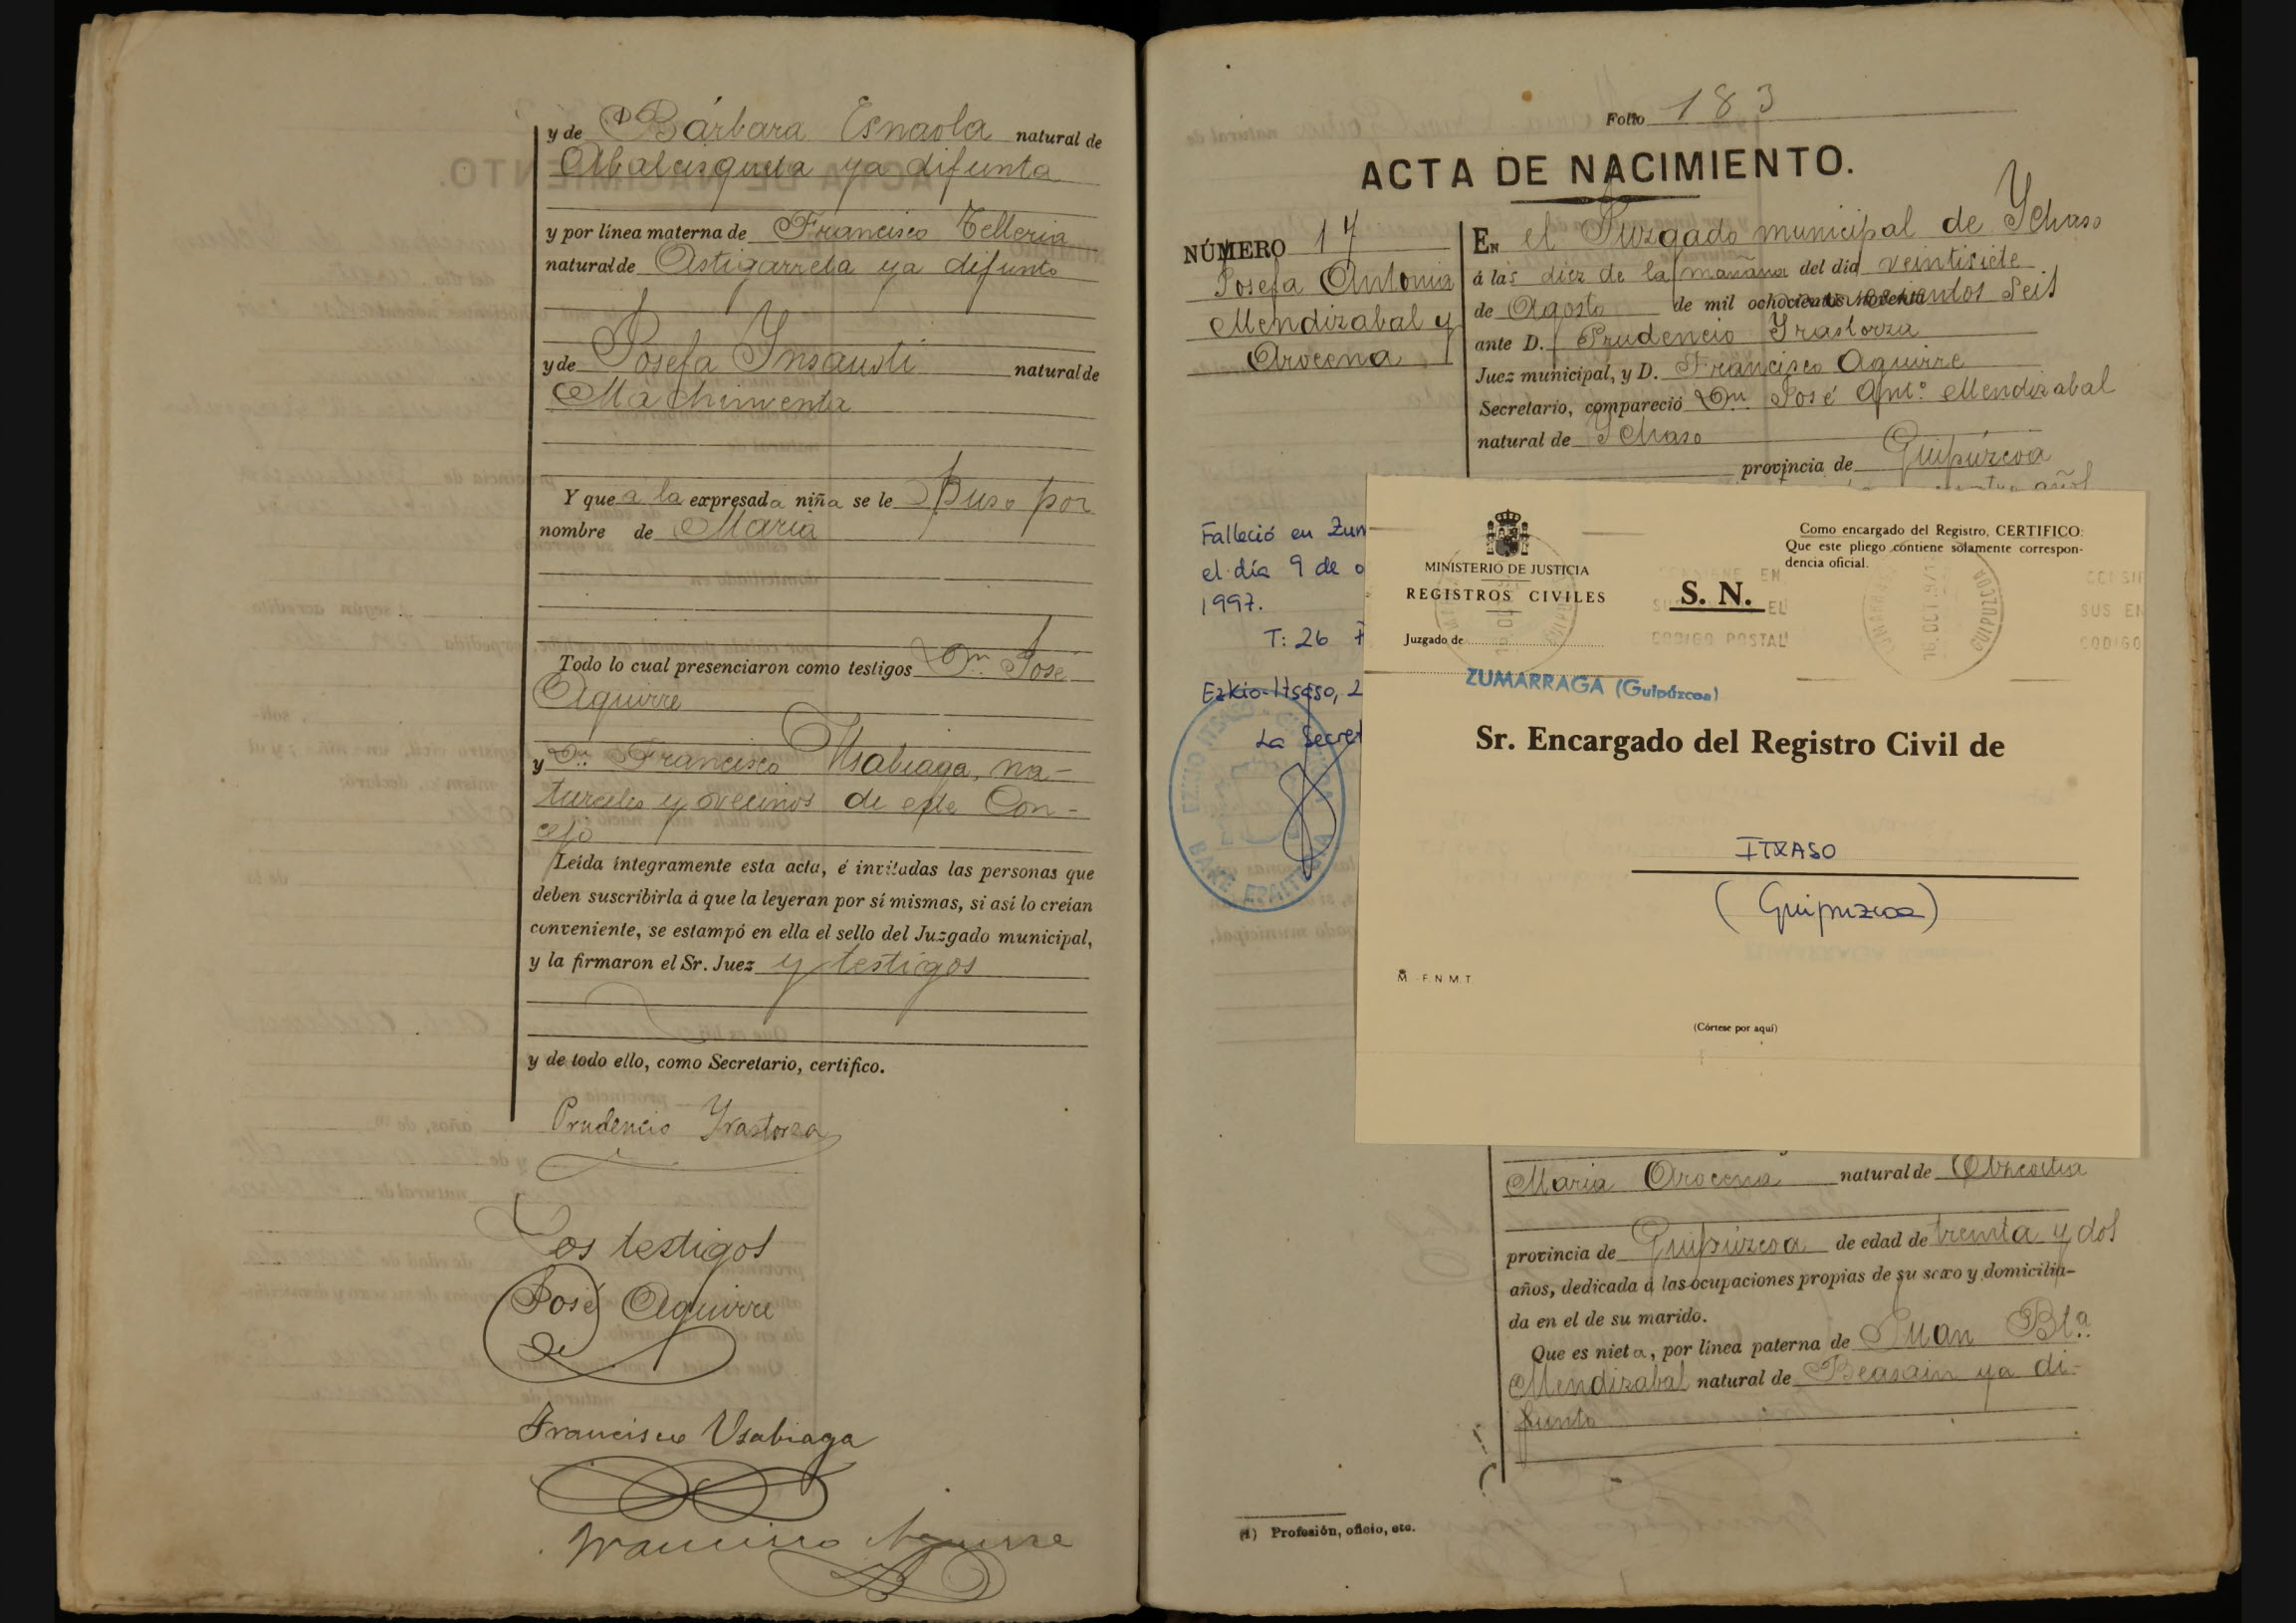 y de Dª Bárbara Esnaola natural de
Abalcisqueta ya difunta
y por línea materna de Francisco Telleria
natural de Astigarreta ya difunto
y de Josefa Ynsausti natural de
Machinventa
Y que a la expresada niña se le puso por
nombre de Maria
Todo lo cual presenciaron como testigos Dn. José
Aguirre
y Dn. Francisco Usabiaga, na-
turales y vecinos de este Con-
cejo
Leída íntegramente esta acta, é invitadas las personas que
deben suscribirla á que la leyeran por sí mismas, si así lo creían
conveniente, se estampó en ella el sello del Juzgado municipal,
y la firmaron el Sr. Juez y testigos
y de todo ello, como Secretario, certifico.
Prudencio Yrastorza
Los testigos
José Aguirre
Francisco Usabiaga
Francisco Aguirre
Folio 183
ACTA DE NACIMIENTO.
NÚMERO 17
Josefa Antonia
Mendizabal y
Arocena
En el Juzgado municipal de Ychaso
á las diez de la mañana del día veintisiete
de Agosto de mil ochocientos noventa seis
ante D. Prudencio Yrastorza
Juez municipal, y D. Francisco Aguirre
Secretario, compareció Dn José Antº Mendizabal
natural de Ychaso
provincia de Guipúzcoa
años
Falleció en Zum
el día 9 de o
1997.
T: 26
Ezkio-Itsaso, 2
La Secret
EZKIO ITSASO
BAKE EPAITEGIA
MINISTERIO DE JUSTICIA
REGISTROS CIVILES
Juzgado de
ZUMARRAGA (Guipúzcoa)
S. N.
Como encargado del Registro, CERTIFICO:
Que este pliego contiene solamente correspon-
dencia oficial.
CODIGO POSTAL
Sr. Encargado del Registro Civil de
ITXASO
(Guipuzcoa)
F.N.M.T.
(Córtese por aquí)
Maria Arocena natural de
provincia de Guipúzcoa de edad de treinta y dos
años, dedicada á las ocupaciones propias de su sexo y domicilia-
da en el de su marido.
Que es nieta, por línea paterna de Juan Bta.
Mendizabal natural de Beasain ya di-
funto
(1) Profesión, oficio, etc.